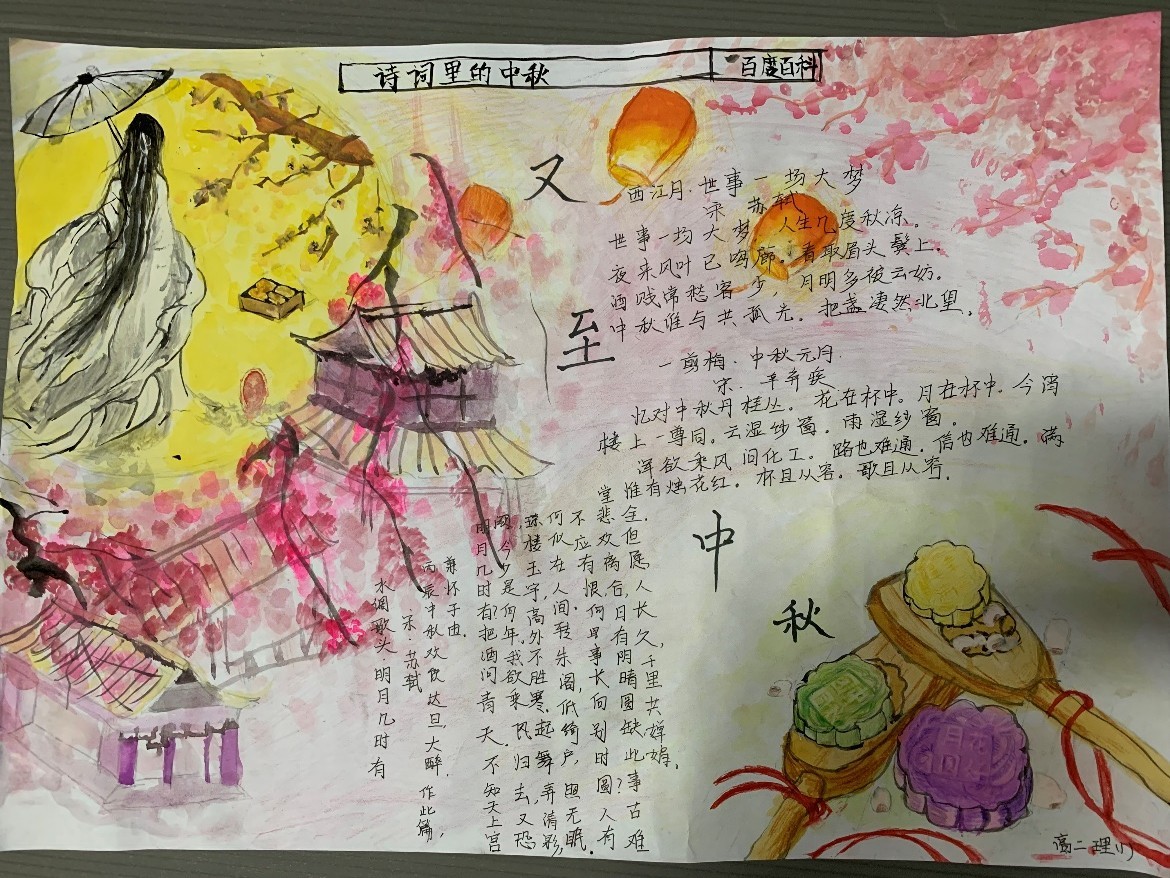 诗词里的中秋 百度百科
人
又
至
中
秋
西江月·世事一场大梦
宋 苏轼
世事一场大梦,人生几度秋凉。
夜来风叶已鸣廊。看取眉头鬓上。
酒贱常愁客少,月明多被云妨。
中秋谁与共孤光。把盏凄然北望。
一剪梅·中秋元月
宋·辛弃疾
忆对中秋丹桂丛。花在杯中。月在杯中。今宵
楼上一尊同。云湿纱窗。雨湿纱窗。
浑欲乘风问化工。路也难通。信也难通。满
堂惟有烛花红。杯且从容。歌且从容。
水调歌头·明月几时有
宋·苏轼
丙辰中秋欢饮达旦,大醉,作此篇,
兼怀子由。
明月几时有?把酒问青天。不知天上宫
阙,今夕是何年。我欲乘风归去,又恐
琼楼玉宇,高处不胜寒。起舞弄清影,
何似在人间。转朱阁,低绮户,照无眠。
不应有恨,何事长向别时圆?人有
悲欢离合,月有阴晴圆缺,此事古难
全。但愿人长久,千里共婵娟。
高二理(1)